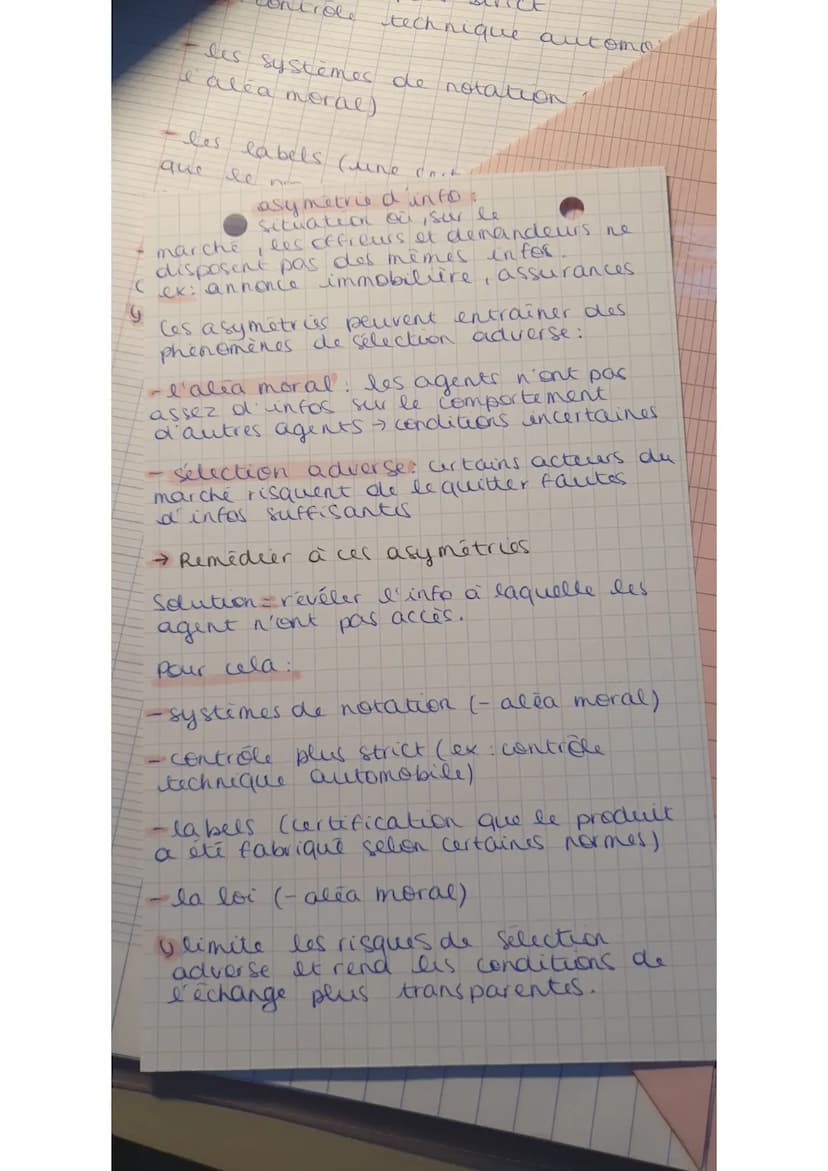 contrôle technique autom
- les systèmes de notation
l'aléa moral)
- les labels (une
que le
asymétrie d'info :
situation où, sur le
marché, les offreurs et demandeurs ne
disposent pas des mêmes infos.
ex: annonce immobilière, assurances
↳ Ces asymétries peuvent entraîner des
phénomènes de sélection adverse:
- l'aléa moral : les agents n'ont pas
assez d'infos sur le comportement
d'autres agents → conditions incertaines
- sélection adverse: certains acteurs du
marché risquent de le quitter fautes
d'infos suffisantes
→ Remédier à ces asymétries
Solution = révéler l'info à laquelle les
agent n'ont pas accès.
Pour cela :
- systèmes de notation (- aléa moral)
- contrôle plus strict (ex : contrôle
technique automobile)
- labels (certification que le produit
a été fabriqué selon certaines normes)
- la loi (- aléa moral)
↳ limite les risques de sélection
adverse et rend les conditions de
l'échange plus transparentes.